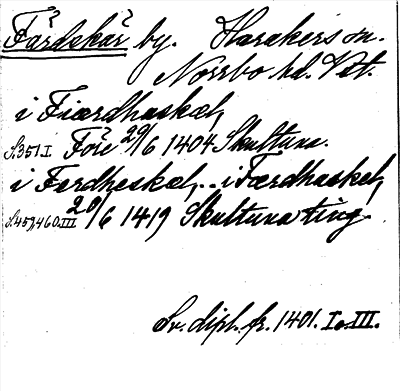 Färdskär by. Harakers sn.
Norrbo hd. Vst.
i Fiærdhaskæl,
S.351.I Före 29/6 1404 Skultuna.
i Ferdheskæl,.. i Færdhaskel,
S.459,460.III 20/6 1419 Skultuna ting.
Sv. dipl. fr. 1401. I o. III.